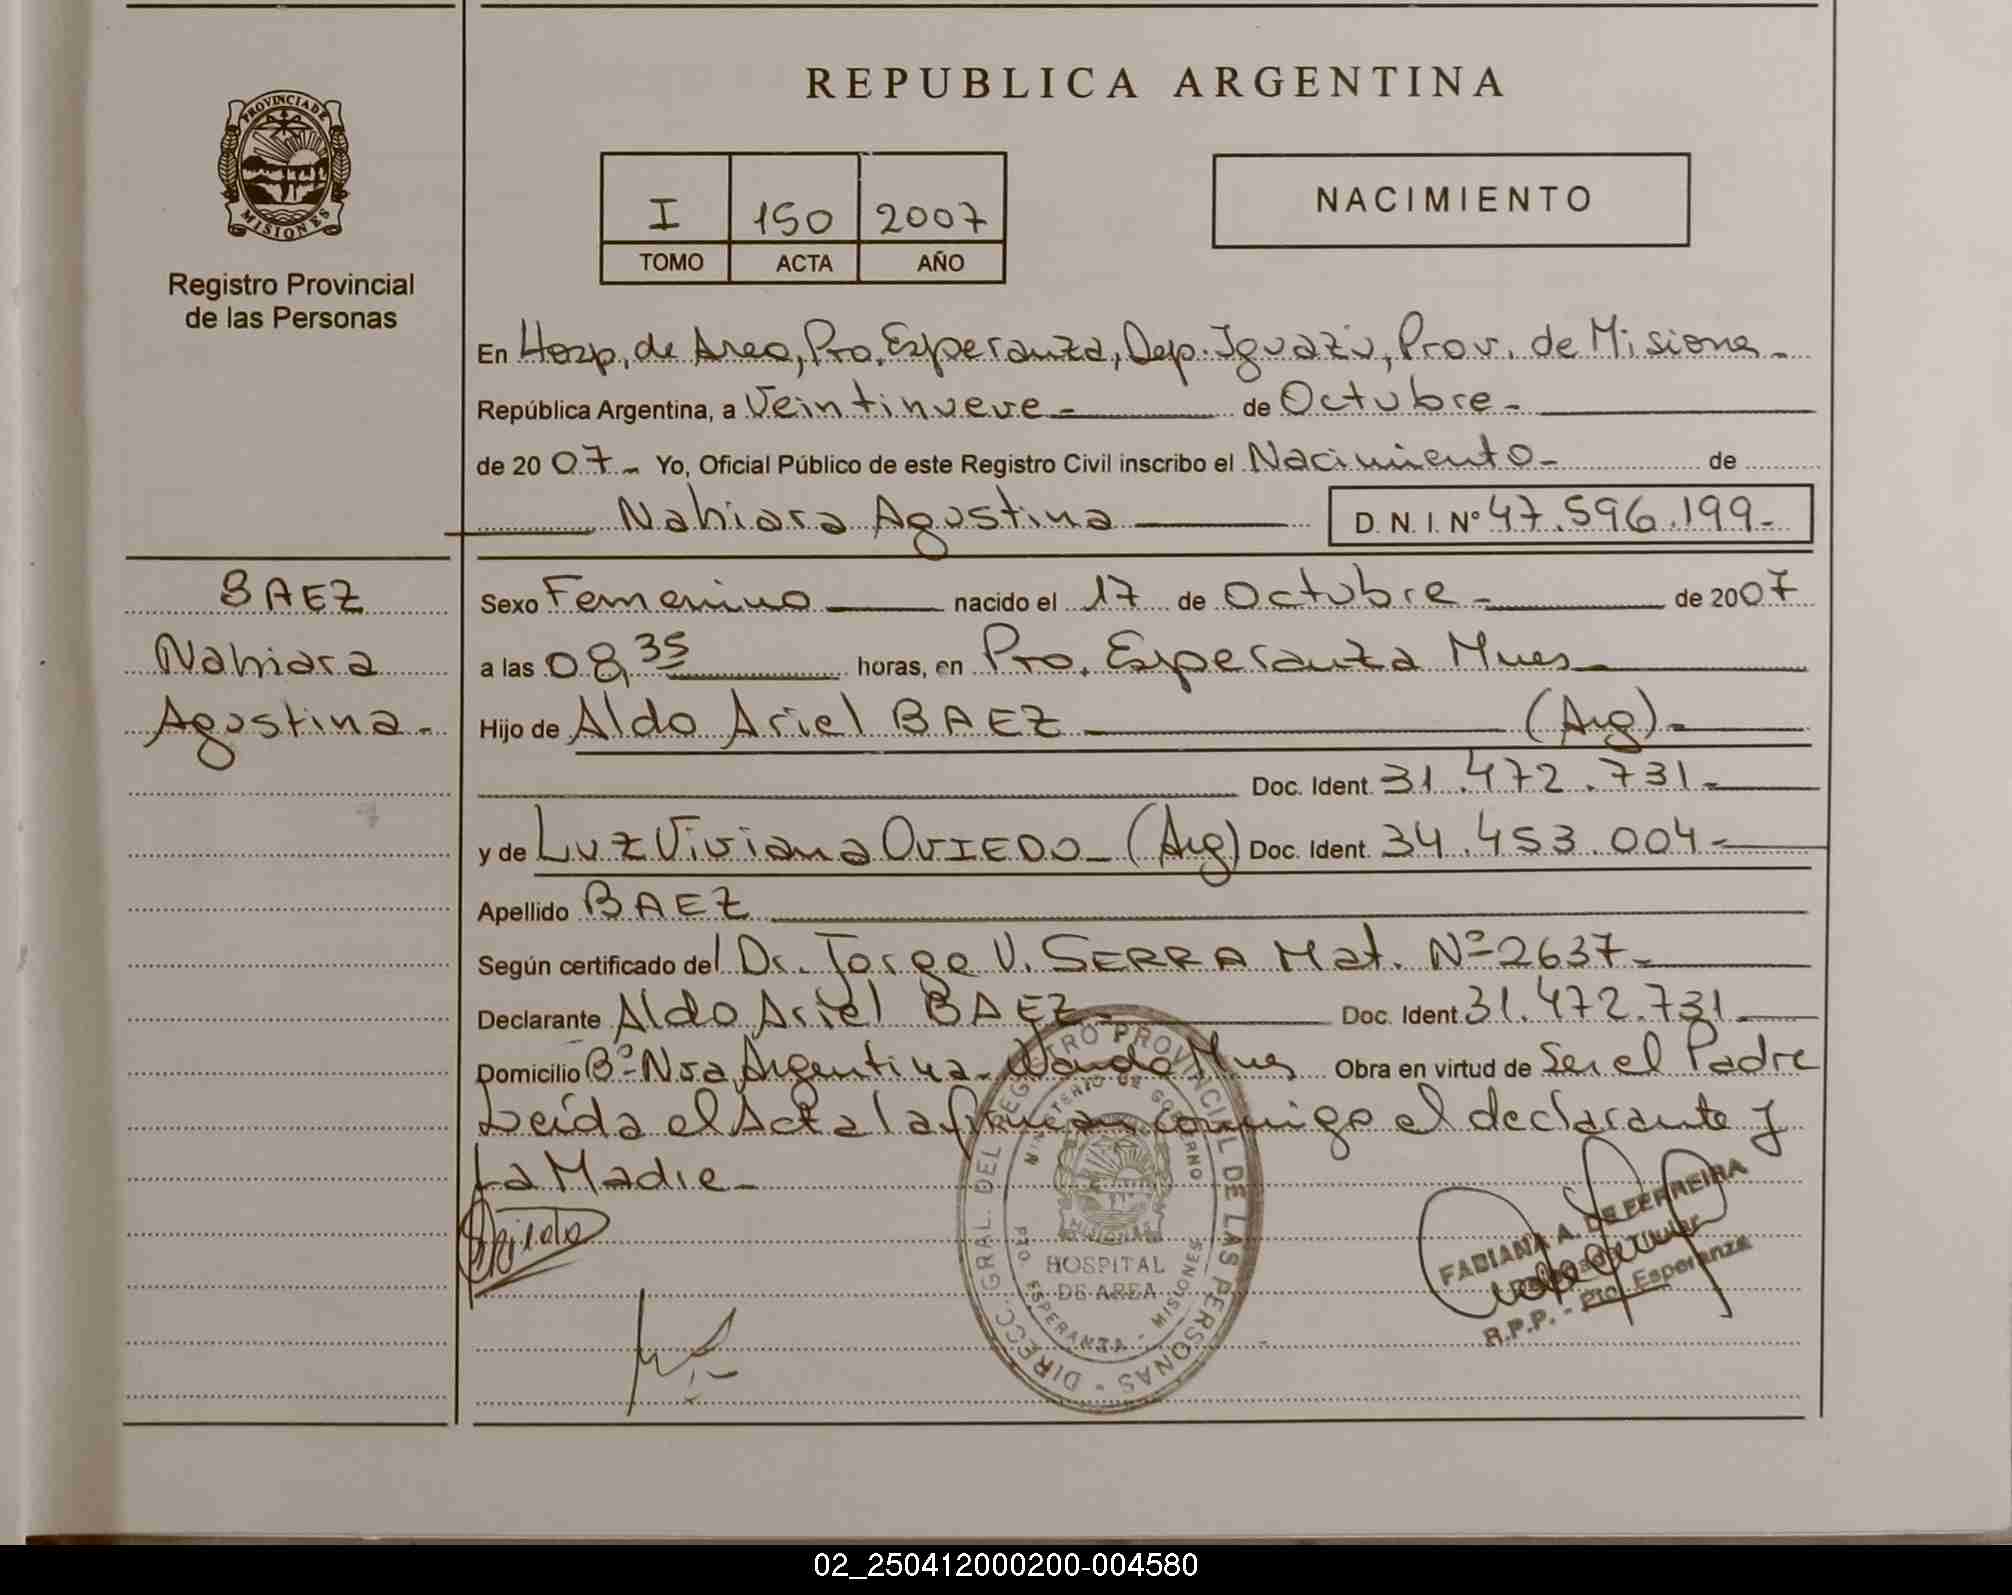 REPUBLICA ARGENTINA
PROVINCIA DE
MISIONES
Registro Provincial
de las Personas
I 150 2007
TOMO ACTA AÑO
NACIMIENTO
En Hosp, de Area, Pto. Esperanza, Dep. Iguazú, Prov. de Misiones
República Argentina, a Veintinueve de Octubre
de 2007 Yo, Oficial Público de este Registro Civil inscribo el Nacimiento de
Nahiara Agostina D. N. I. Nº 47.596.199
BAEZ
Nahiara
Agostina
Sexo Femenino nacido el 17 de Octubre de 2007
a las 08,35 horas, en Pto. Esperanza Mnes
Hijo de Aldo Ariel BAEZ (Arg)
Doc. Ident. 31.472.731
y de Luz Viviana OVIEDO (Arg) Doc. Ident. 34.453.004
Apellido BAEZ
Según certificado del Dr. Jorge V. SERRA Mat. Nº 2637
Declarante Aldo Ariel BAEZ Doc. Ident. 31.472.731
Domicilio Bº Nsa Argentina - Wanda Mnes Obra en virtud de Ser el Padre
Leída el Acta la firman conmigo el declarante y
La Madre
DIRECC. GRAL. DEL REGISTRO PROVINCIAL DE LAS PERSONAS
MINISTERIO DE GOBIERNO
MISIONES
HOSPITAL
DE AREA
PTO. ESPERANZA - MISIONES
FABIANA A. DE FERREIRA
Titular
R.P.P. - Pto. Esperanza
02_250412000200-004580